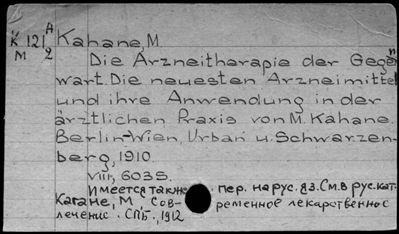 К 121 А Kahane, M
М 2
Die Arzneitharapie der Gegen
wart. Die neuesten Arzneimittel
und ihre Anwendung in der
ärztlichen Praxis von M. Kahane.
Berlin-Wien, Urban u. Schwarzen-
berg, 1910.
VIII, 603S.
Имеется также пер. на рус. яз. См. в рус. кат.
Кагане, М Современное лекарственное
лечение. СПБ., 1912